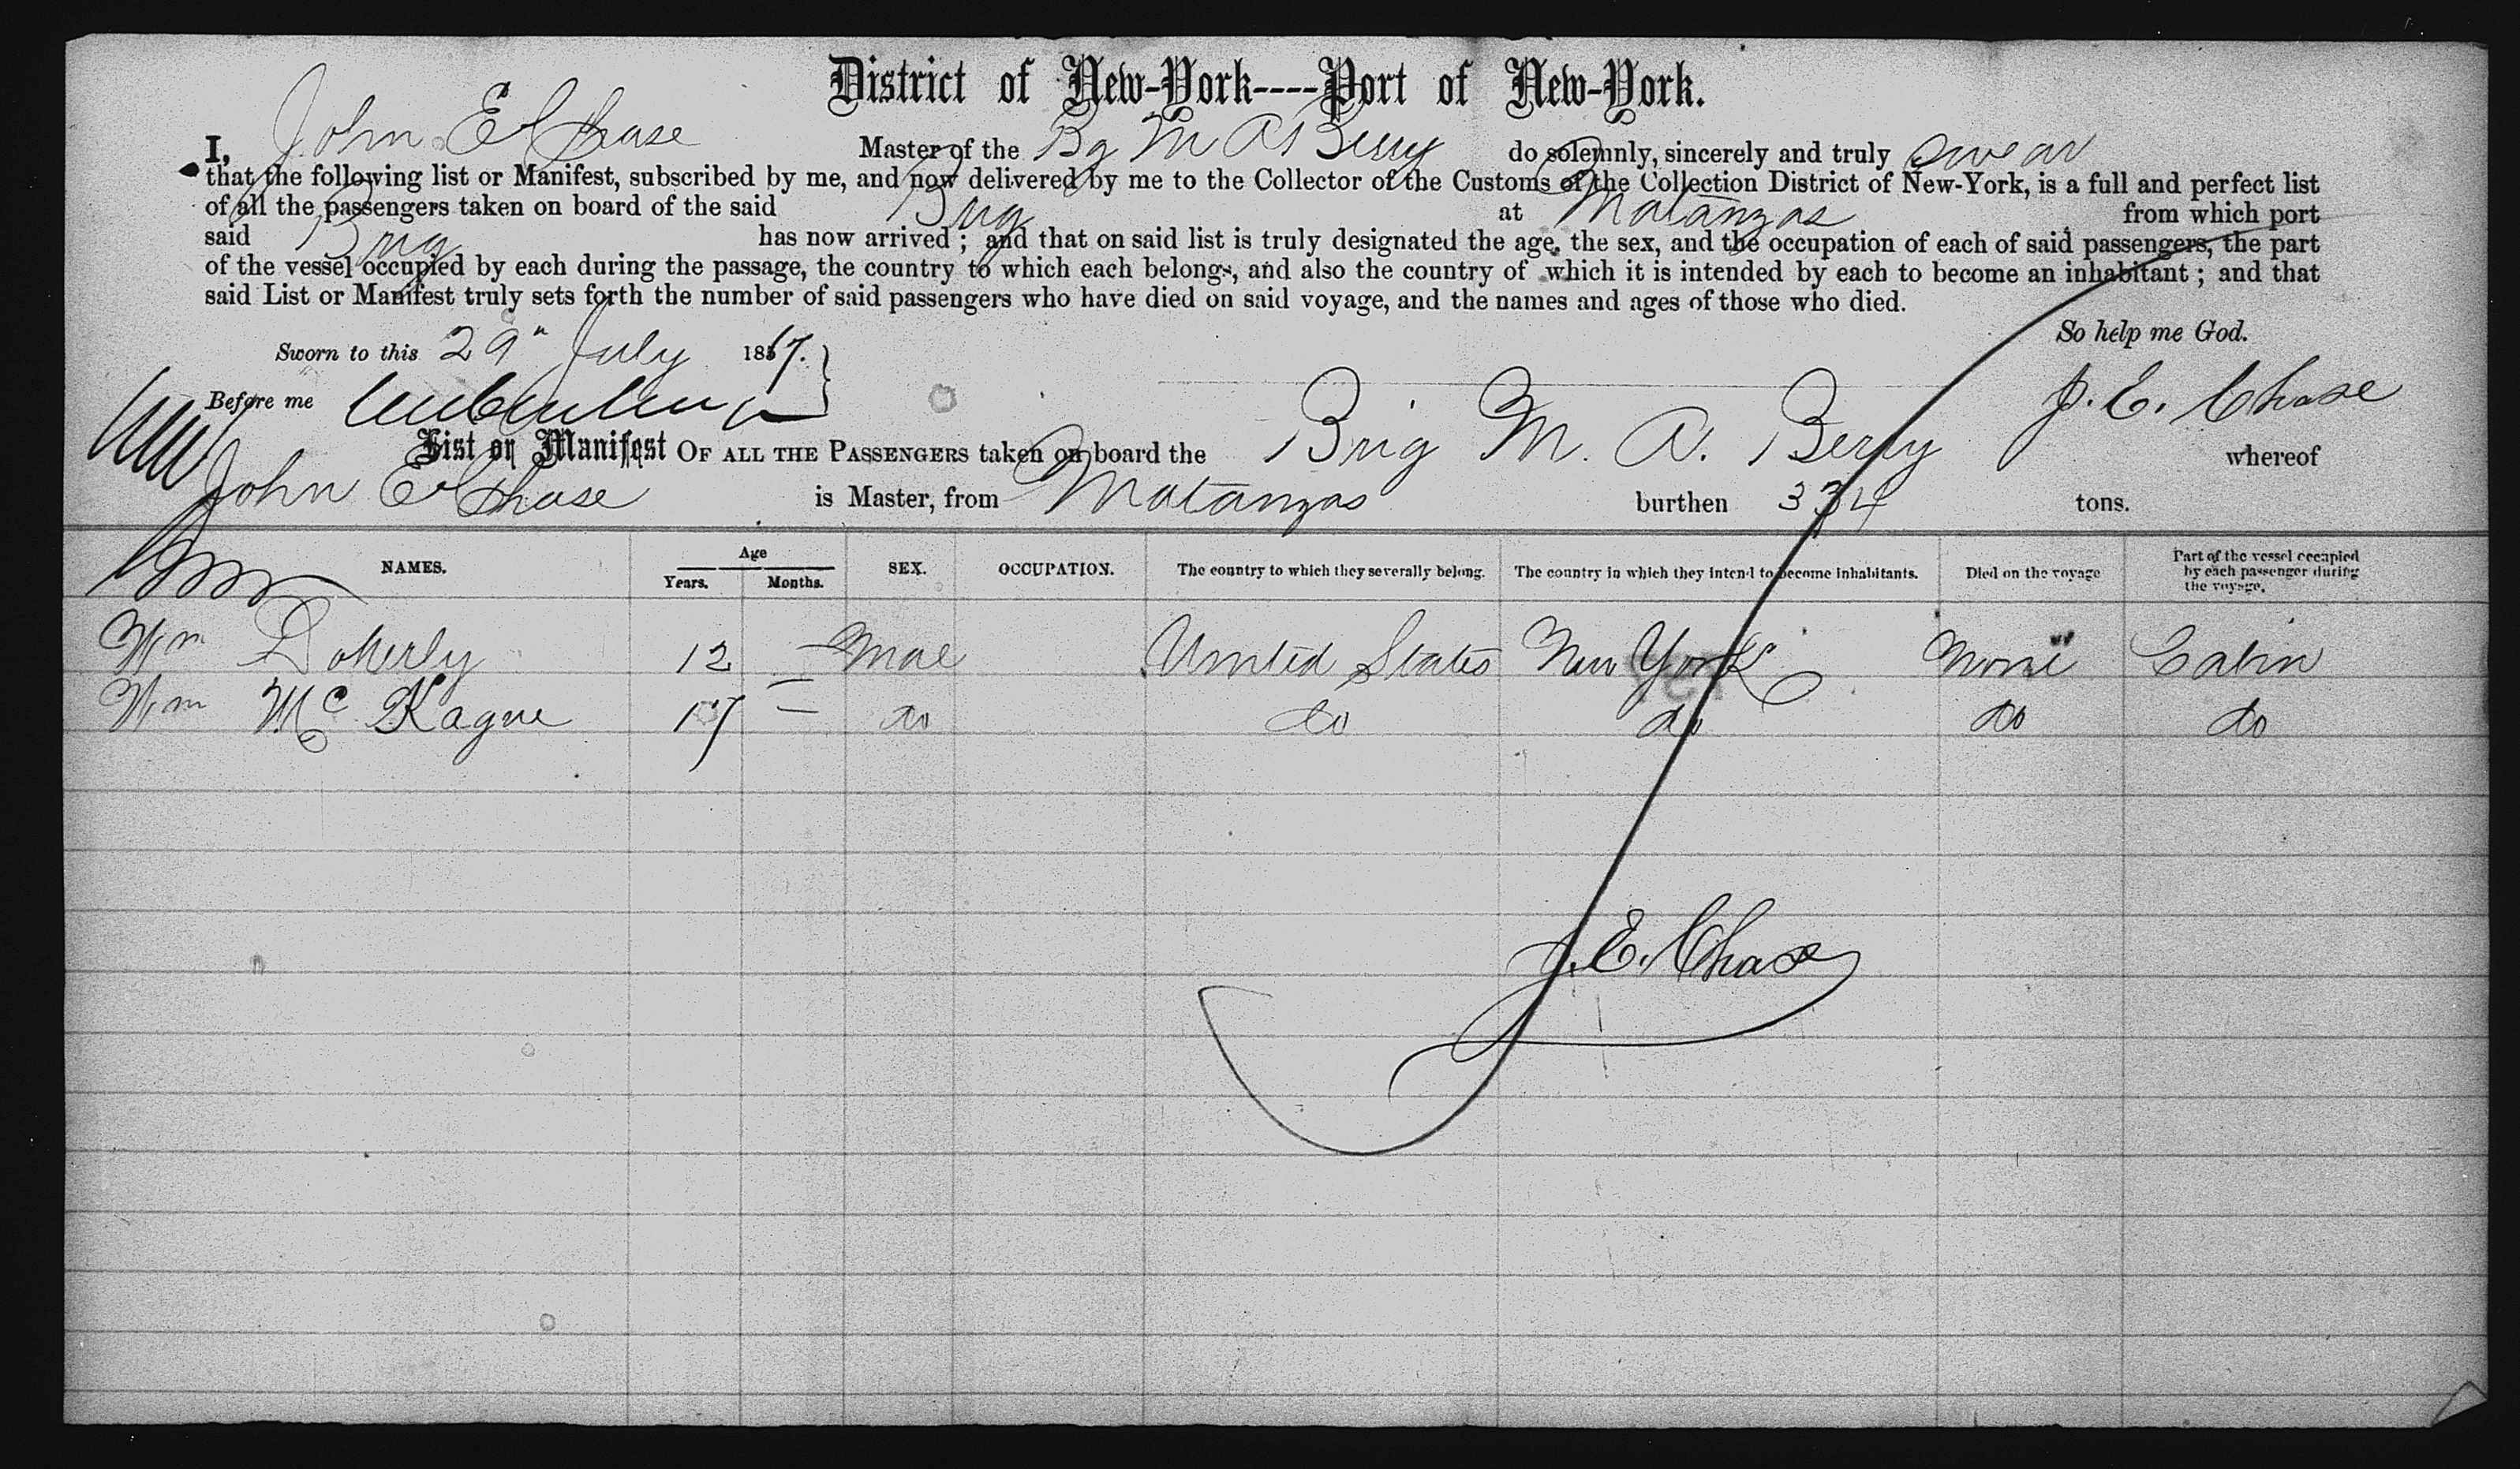 District of New-York----Port of New-York.
I, John E Chase Master of the Bg M A Berry do solemnly, sincerely and truly swear
that the following list or Manifest, subscribed by me, and now delivered by me to the Collector of the Customs of the Collection District of New-York, is a full and perfect list
of all the passengers taken on board of the said Brig at Matanzas from which port
said Brig has now arrived; and that on said list is truly designated the age, the sex, and the occupation of each of said passengers, the part
of the vessel occupied by each during the passage, the country to which each belongs, and also the country of which it is intended by each to become an inhabitant; and that
said List or Manifest truly sets forth the number of said passengers who have died on said voyage, and the names and ages of those who died.
So help me God.
Sworn to this 29" July 1867.
Before me
J. E. Chase
List or Manifest OF ALL THE PASSENGERS taken on board the Brig M. A. Berry whereof
John E Chase is Master, from Matanzas burthen 334 tons.
NAMES. Age Years. Months. SEX. OCCUPATION. The country to which they severally belong. The country in which they intend to become inhabitants. Died on the voyage Part of the vessel occupied by each passenger during the voyage.
Wm Doherly 12 — Mae United States New York None Cabin
Wm Mc Kague 17 — do do do do do
J. E. Chase